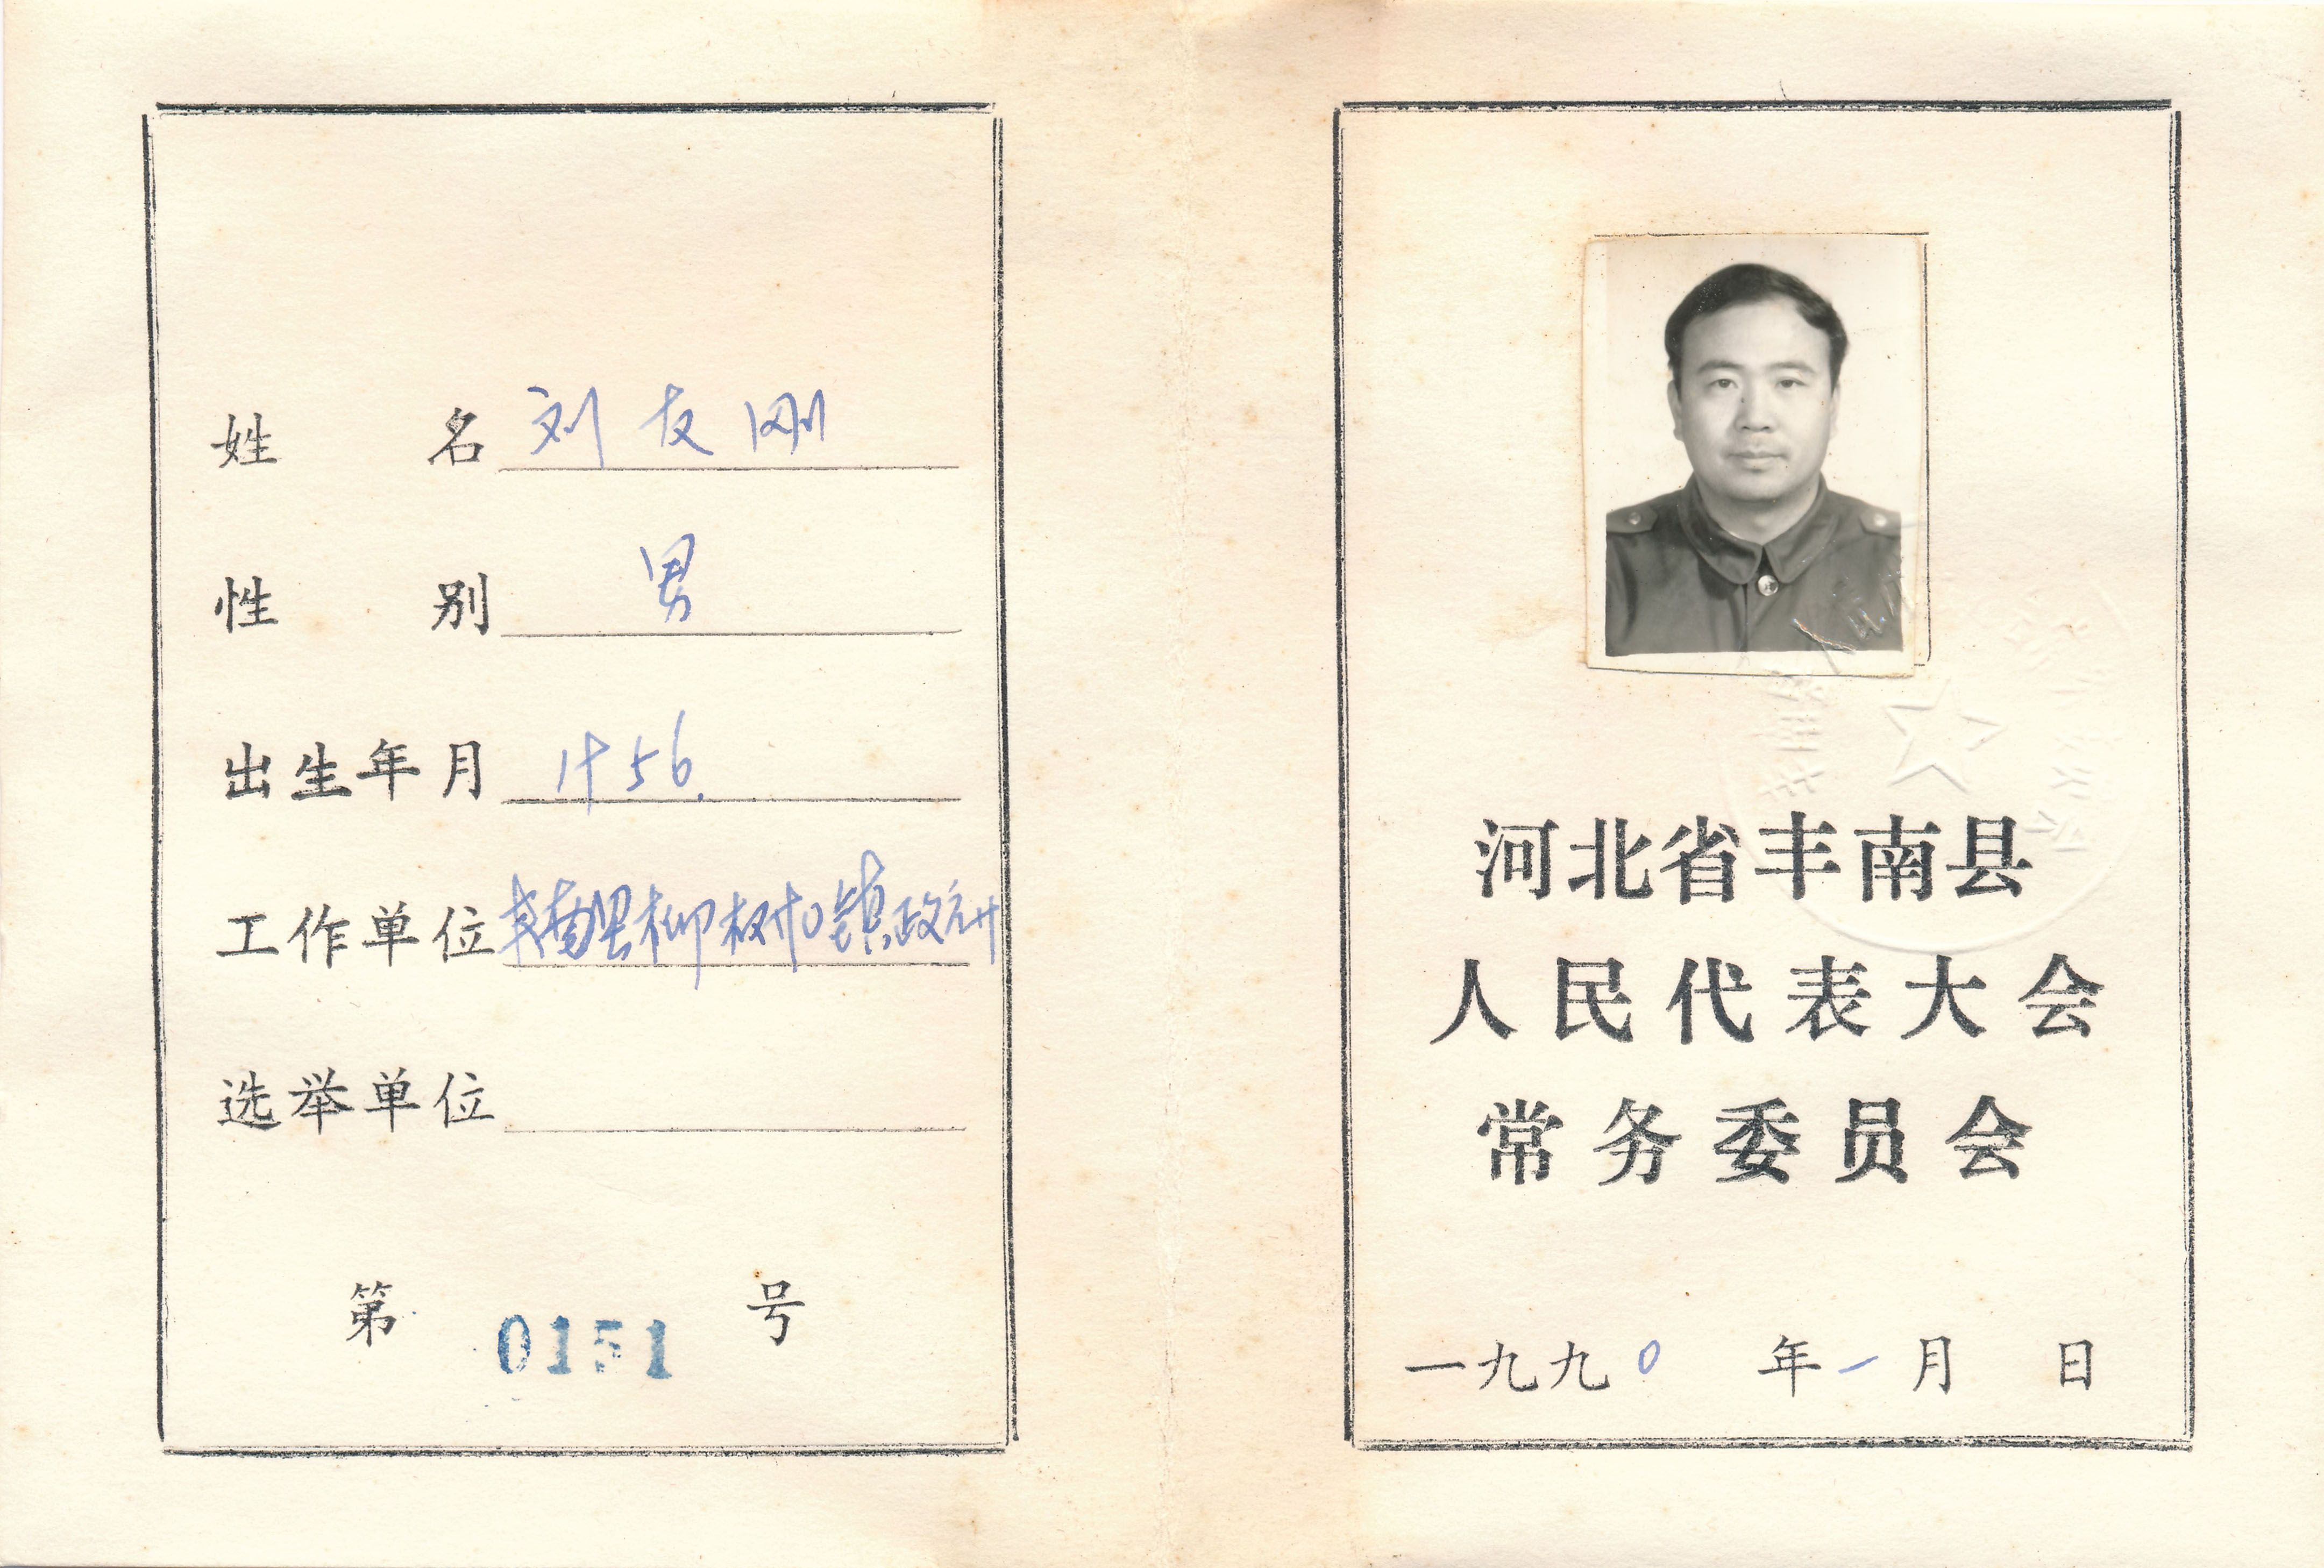 姓名 刘友刚
性别 男
出生年月 1956.
工作单位 丰南县柳树瞿镇政府
选举单位
第 0151 号
河北省丰南县
人民代表大会
常务委员会
一九九0年一月 日